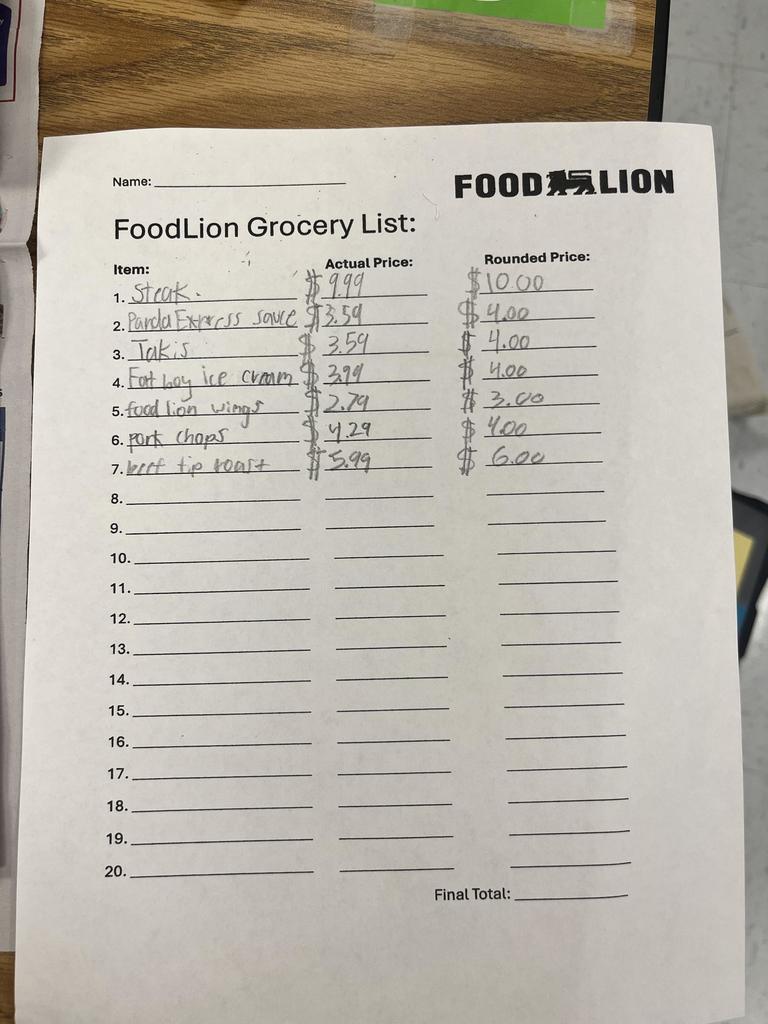 Name:
FOOD LION
FoodLion Grocery List:
Item: Actual Price: Rounded Price:
1. Steak. $ 9.99 $10.00
2. Panda Express sauce $3.59 $ 4.00
3. Takis $ 3.59 $ 4.00
4. Fat boy ice cream $ 3.99 $ 4.00
5. food lion wings $ 2.79 $ 3.00
6. pork chops $ 4.29 $ 4.00
7. beef tip roast $ 5.99 $ 6.00
8.
9.
10.
11.
12.
13.
14.
15.
16.
17.
18.
19.
20.
Final Total: